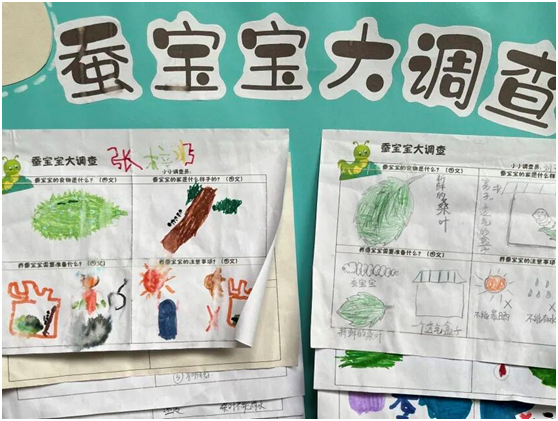 蚕宝宝大调查
蚕宝宝大调查
小小调查员
蚕宝宝的食物是什么？（图文）
蚕宝宝的家是什么样子的？（图文）
养蚕宝宝需要准备什么？（图文）
养蚕宝宝的注意事项？（图文）
蚕宝宝大调查
小小调查员
蚕宝宝的食物是什么？（图文）
蚕宝宝的家是什么样
新鲜的桑叶
养蚕宝宝需要准备什么？（图文）
养蚕宝宝的注意事项
蚕宝宝
新鲜的桑叶
一个透气盒子
不能暴晒